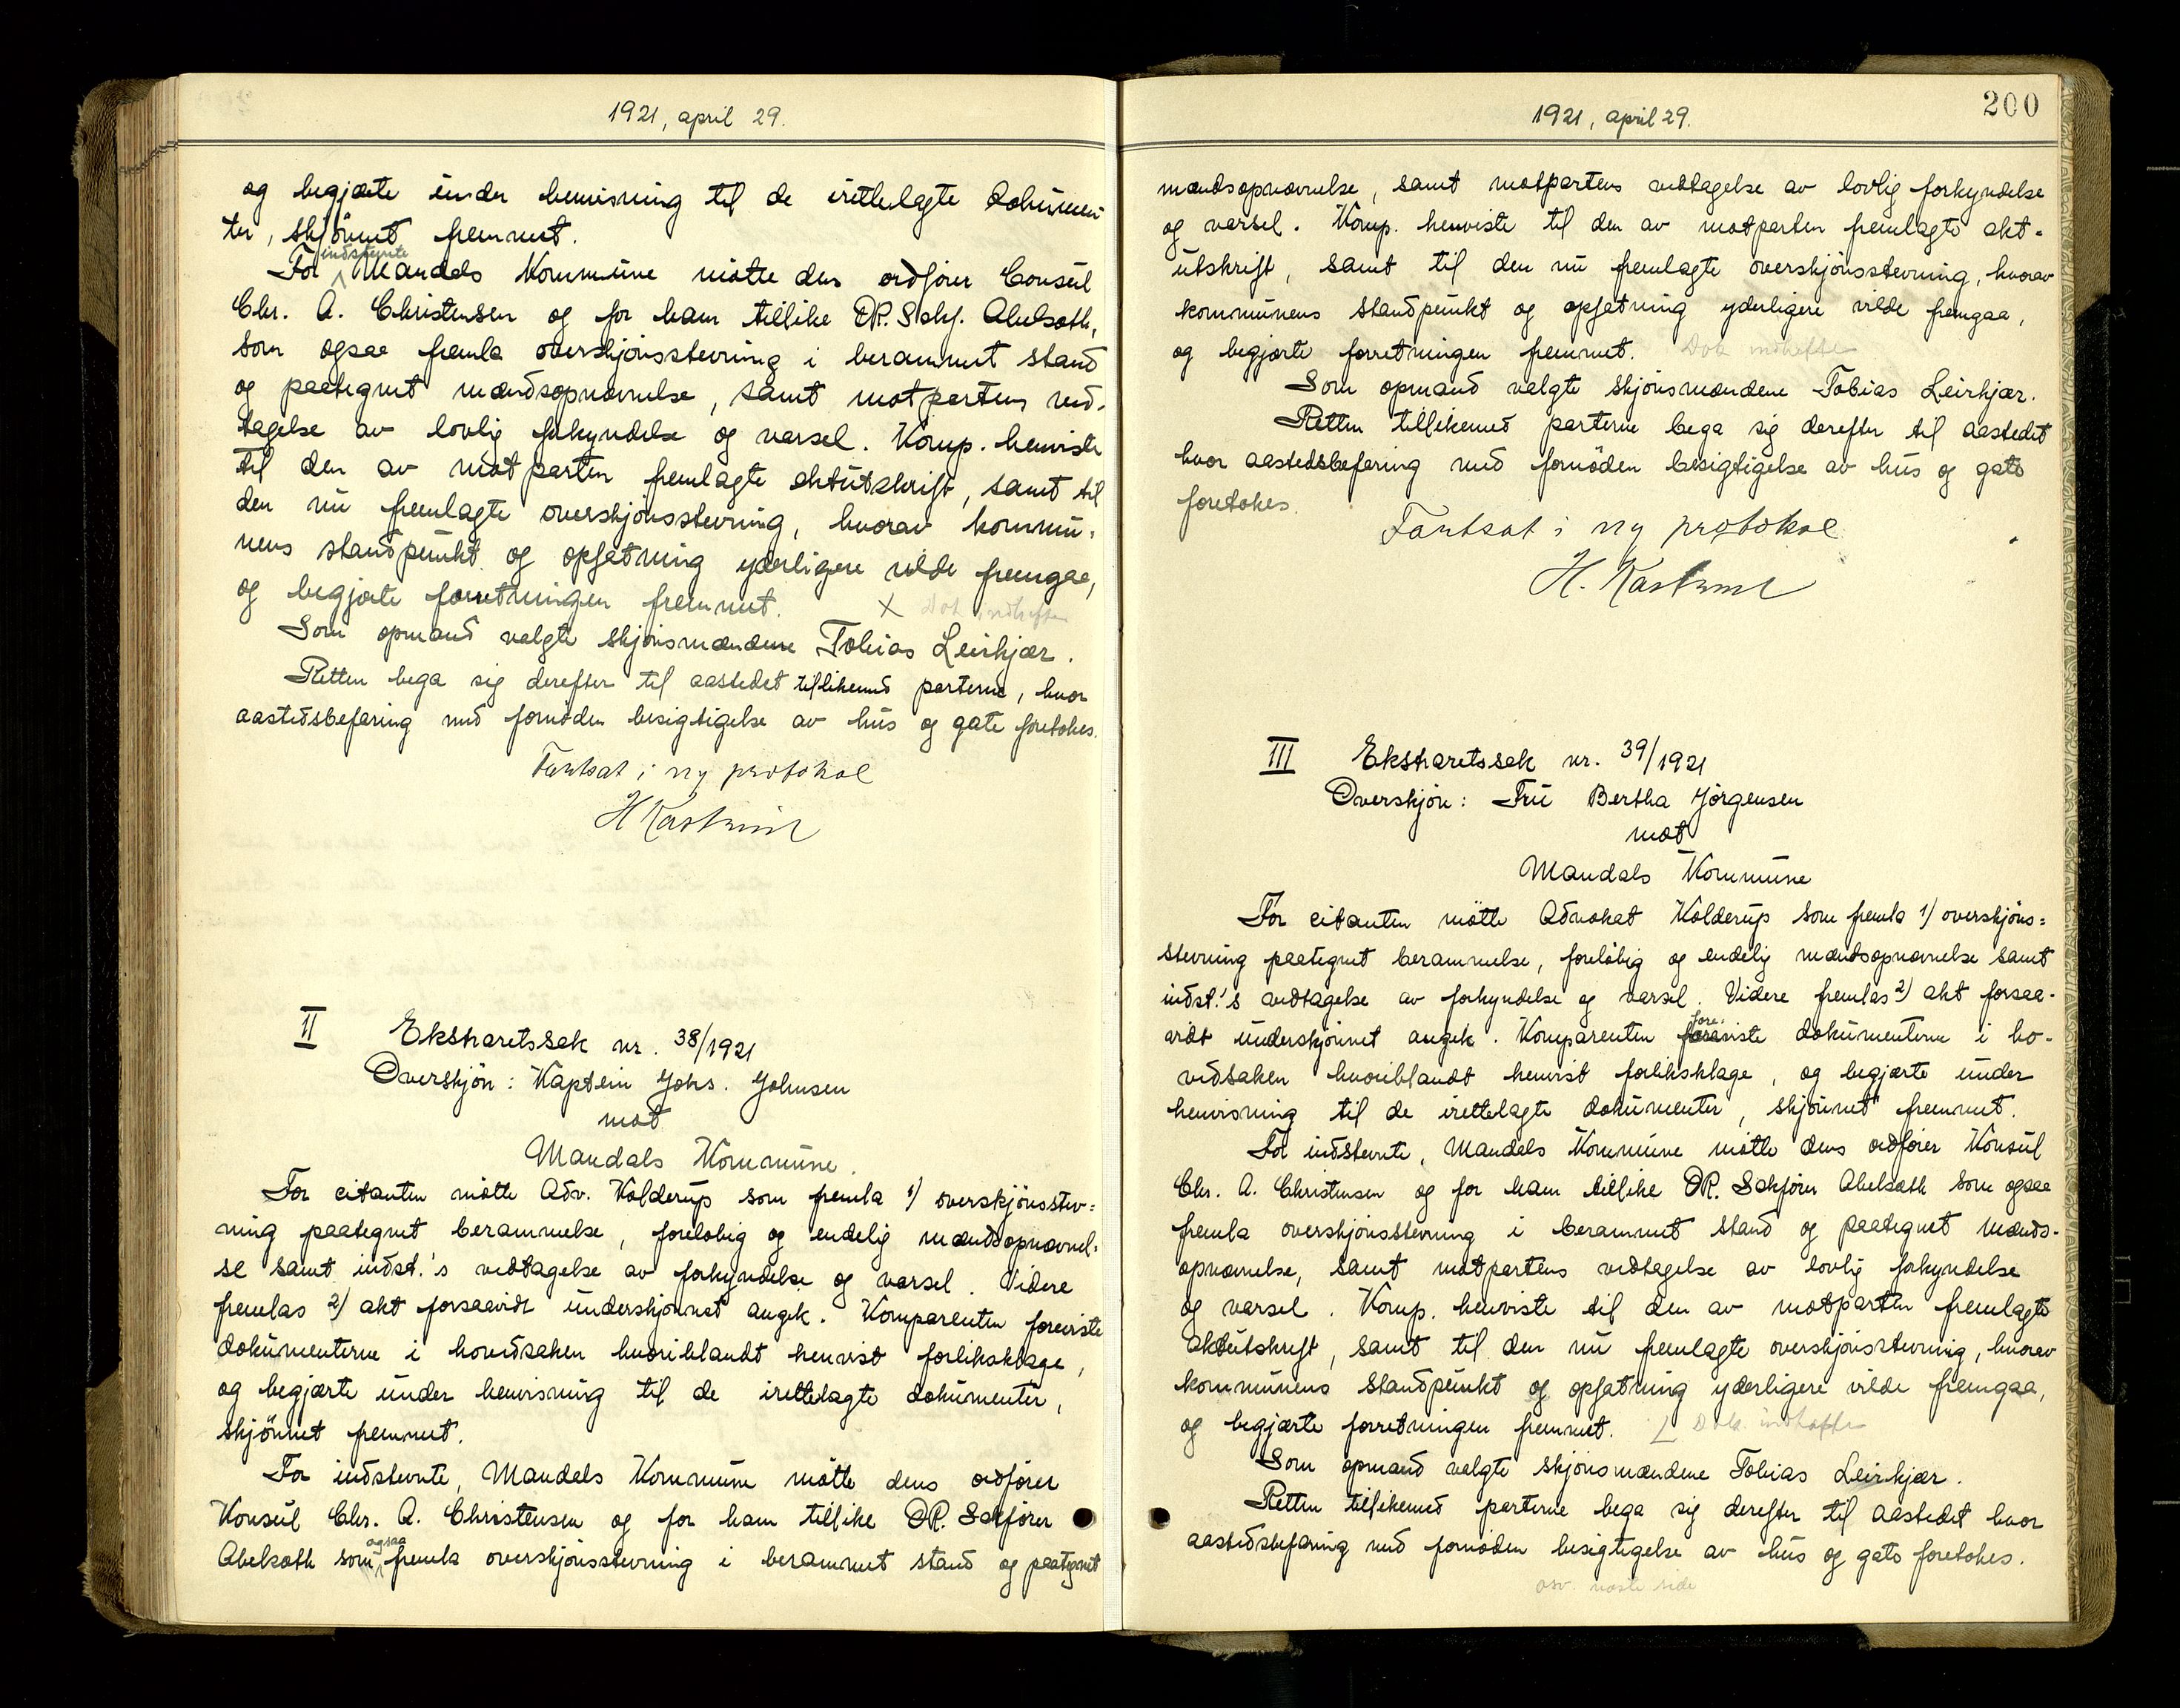 1921, april 29.
og begjærte under henvisning til de irettelagte dokumen-
ter, skjönnet fremmet.
indstevnte
For Mandals Kommune mötte dens ordförer Consul
Chr. A. Christensen og for ham tillike OR. Sakf. Abelsæth,
som ogsaa fremla overskjönsstevning i berammet stand
og paategnet mændsopnævnelse, samt motpartens ved-
tagelse av lovlig forkyndelse og varsel. Komp. henviste
til den av motparten fremlagte aktutskrift, samt til
den nu fremlagte overskjönsstevning, hvorav kommu-
nens standpunkt og opfatning yderligere vilde fremgaa,
og begjærte forretningen fremmet. X Dok indheftes
Som opmand valgte skjönsmændene Tobias Leirkjær.
Retten bega sig derefter til aastedet tillikemed parterne, hvor
aastedsbefaring med fornöden besigtigelse av hus og gate foretokes.
Fortsat i ny protokol
H Kastrud
II Ekstraretssak nr. 38/1921
Overskjön: Kaptein Johs. Johnsen
mot
Mandals Kommune.
For citanten mötte Adv. Kolderup som fremla 1) overskjönsstev-
ning paategnet berammelse, forelöbig og endelig mændsopnævnel-
se samt indst.'s vedtagelse av forkyndelse og varsel. Videre
fremlas 2) akt forsaavidt underskjönnet angik. Komparenten foreviste
dokumenterne i hovedsaken hvoriblandt henvist forliksklage,
og begjærte under henvisning til de irettelagte dokumenter,
skjönnet fremmet.
For indstevnte, Mandals Kommune mötte dens ordförer
Konsul Chr. A. Christensen og for ham tillike OR. Sakförer
ogsaa
Abelsæth som fremla overskjönsstevning i berammet stand og paategnet
1921, april 29.
200
mændsopnævnelse, samt motpartens vedtagelse av lovlig forkyndelse
og varsel. Komp. henviste til den av motparten fremlagte akt-
utskrift, samt til den nu fremlagte overskjönsstevning, hvorav
kommunens standpunkt og opfatning yderligere vilde fremgaa,
og begjærte forretningen fremmet. Dok indheftes
Som opmand valgte skjönsmændene Tobias Leirkjær.
Retten tillikemed parterne bega sig derefter til aastedet
hvor aastedsbefaring med fornöden besigtigelse av hus og gate
foretokes.
Fortsat i ny protokol
H. Kastrud
III Ekstraretssak nr. 39/1921
Overskjön: Fru Bertha Jörgensen
mot
Mandals Kommune
For citanten mötte Advokat Kolderup som fremla 1) overskjöns=
stevning paategnet berammelse, forelöbig og endelig mændsopnævnelse samt
indst.'s vedtagelse av forkyndelse og varsel. Videre fremlas 2) akt forsaa-
vidt underskjönnet angik. Komparenten foreviste dokumenterne i ho-
vedsaken hvoriblandt henvist forliksklage, og begjærte under
henvisning til de irettelagte dokumenter, skjönnet fremmet.
For indstevnte, Mandals Kommune mötte dens ordförer Konsul
Chr. A. Christensen og for ham tillike OR. Sakförer Abelsæth som ogsaa
fremla overskjönsstevning i berammet stand og paategnet mænds-
opnævnelse, samt motpartens vedtagelse av lovlig forkyndelse
og varsel. Komp. henviste til den av motparten fremlagte
aktutskrift, samt til den nu fremlagte overskjönsstevning, hvorav
kommunens standpunkt og opfatning yderligere vilde fremgaa,
og begjærte forretningen fremmet. Dok. indheftes
Som opmand valgte skjönsmændene Tobias Leirkjær.
Retten tillikemed parterne bega sig derefter til aastedet hvor
aastedsbefaring med fornöden besigtigelse av hus og gate foretokes.
osv. næste side